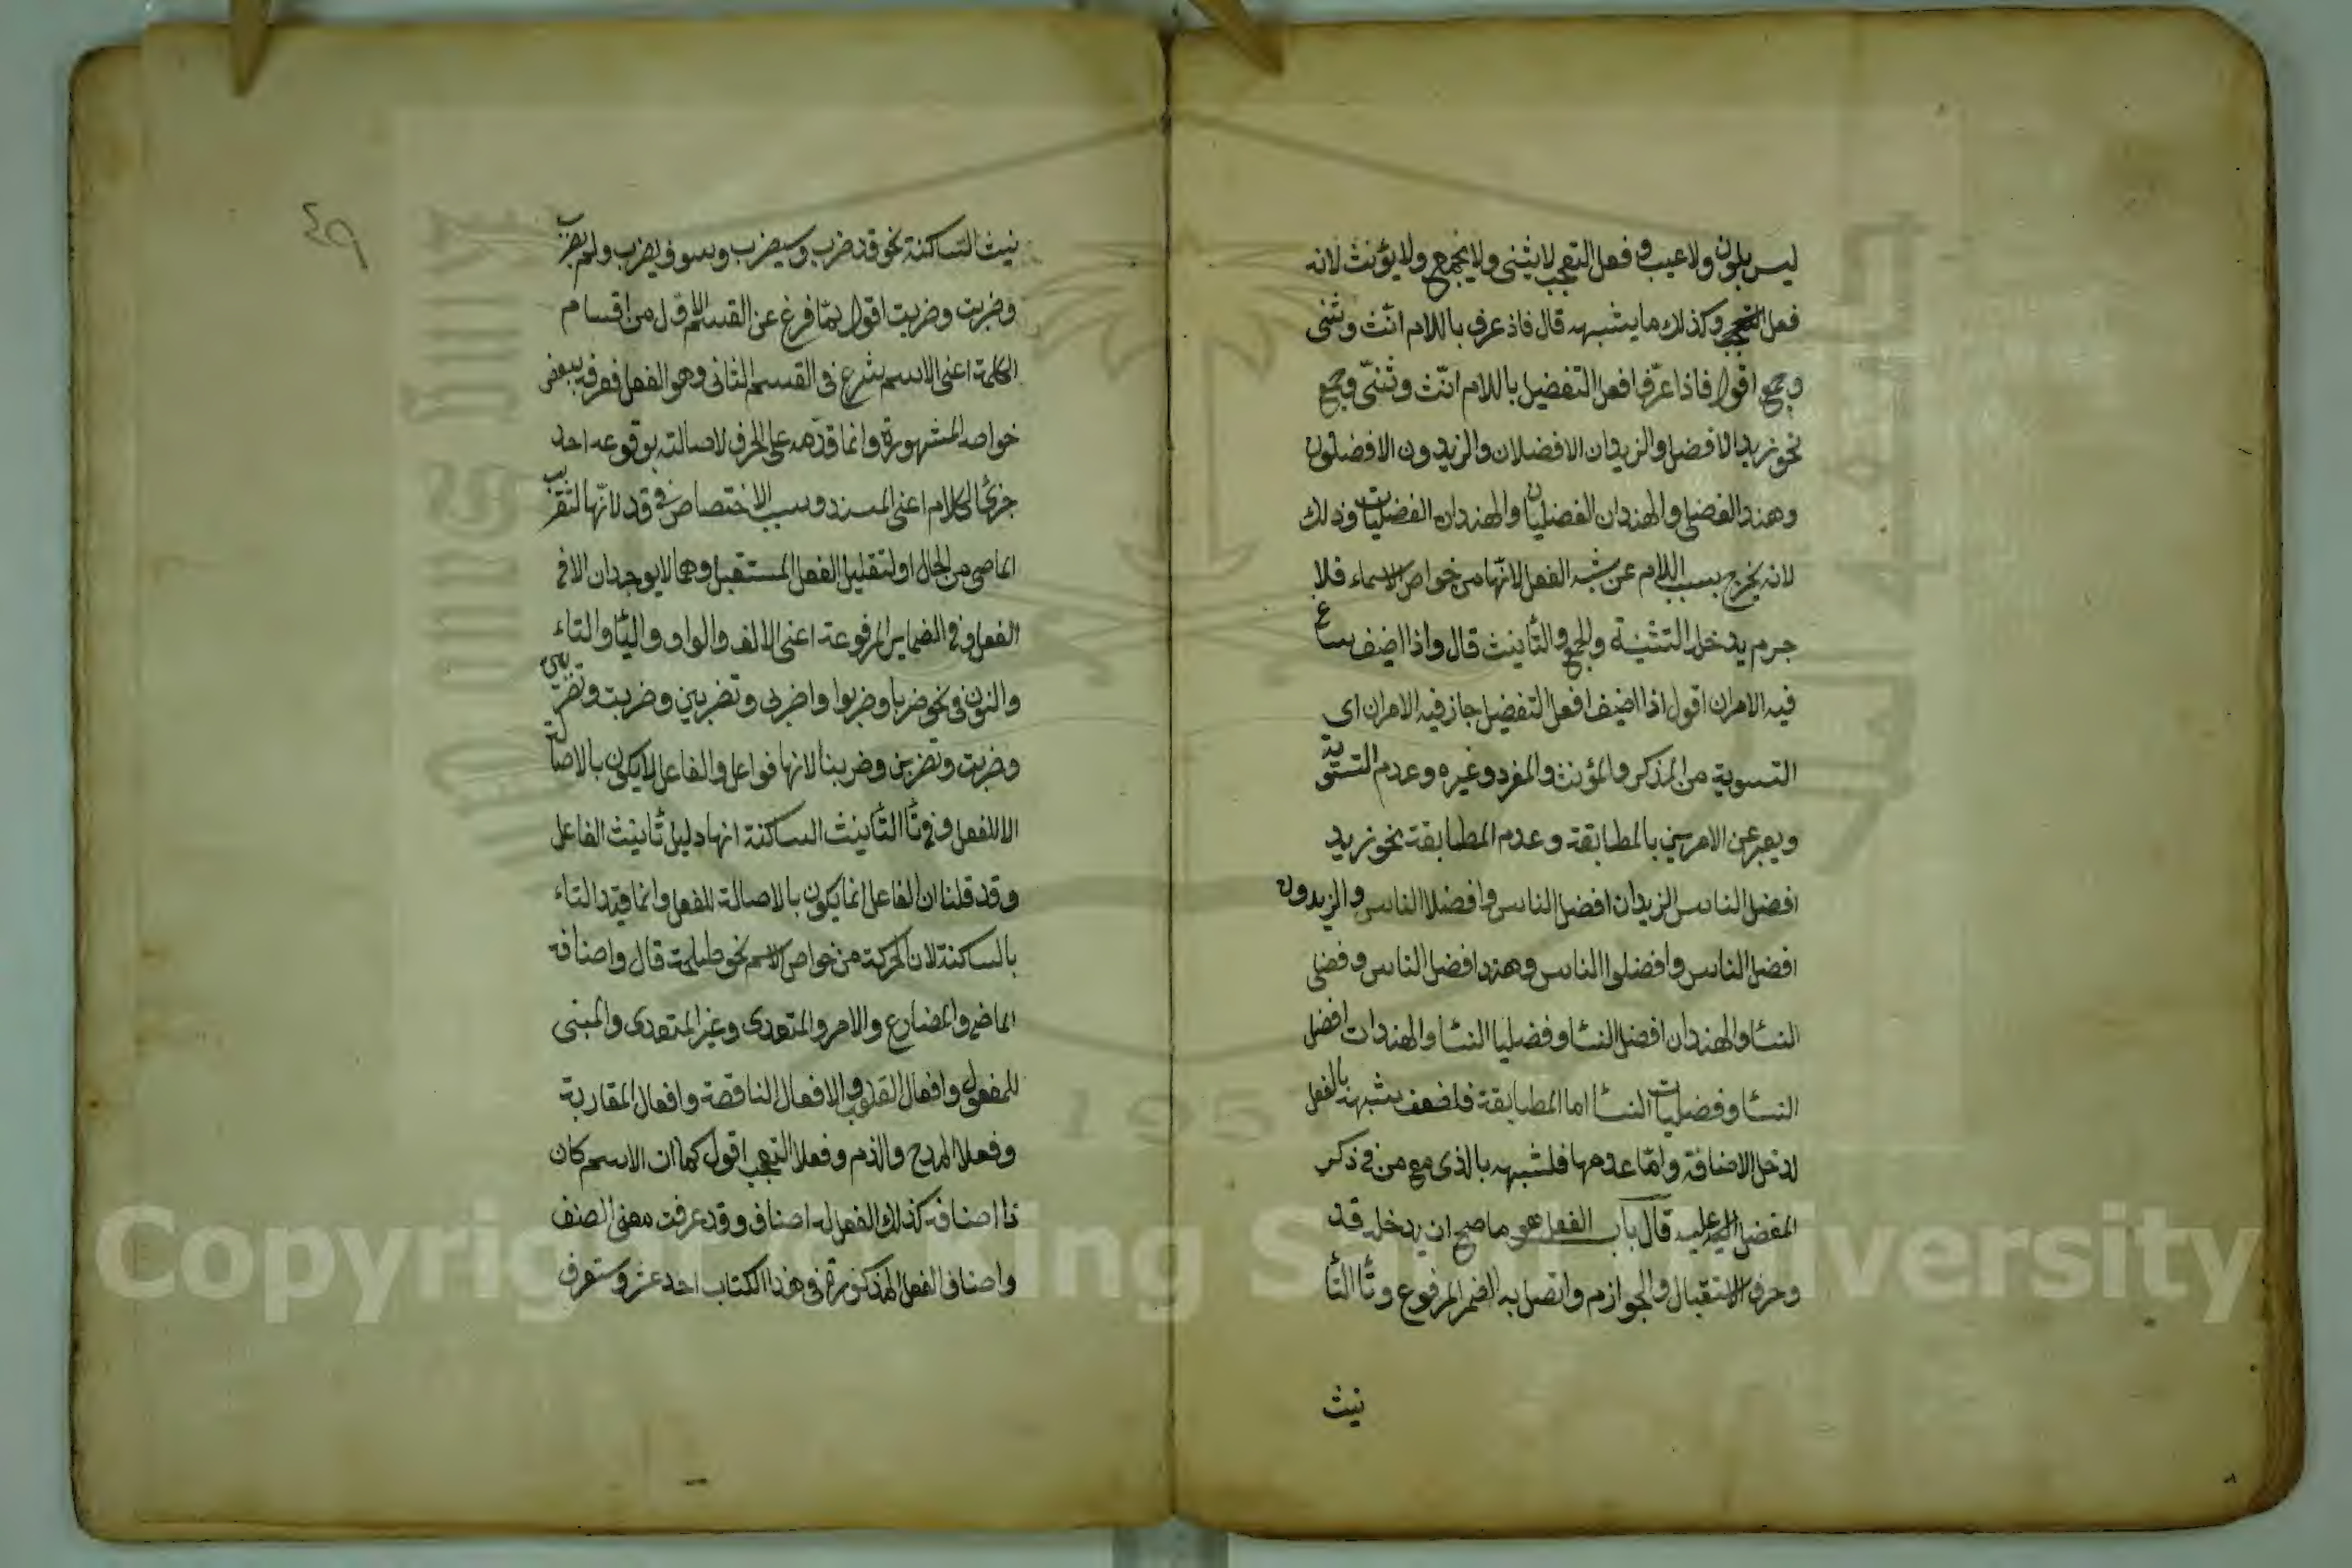 ليس بلون ولا عيب وفعل التعجب لا يثنى ولا يجمع ولا يؤنث لانه
فعل التعجب وكذلك ما يشبهه قال فاذ عرف باللام انّث وثنى
وجمع اقول فاذا عرّف افعل التفضيل باللام انّث وثنّى وجمع
نحو زيد الافضل والزيدان الافضلان والزيدون الافضلون
وهند الفضلى والهندان الفضليان والهندات الفضليات وذلك
لانه يخرج بسبب اللام عن شبه الفعل لانّها من خواص الاسماء فلا
جرم يدخل التثنية والجمع والتأنيث قال واذا اضيف ساغ
فيه الامران اقول اذا اضيف افعل التفضيل جاز فيه الامران اى
التسوية من المذكر والمؤنث والمفرد وغيره وعدم التسوية
ويعبر عن الامرين بالمطابقة وعدم المطابقة نحو زيد
افضل الناس الزيدان افضل الناس وافضلا الناس والزيدون
افضل الناس وافضلوا الناس وهند افضل الناس وفضلى
النسا والهندان افضل النسا وفضليا النسا والهندات افضل
النسا وفضليات النسا اما المطابقة فلضعف شبهه بالفعل
لدخل الاضافة وامّا عدمها فلشبهه بالذى مع من فى ذكر
المفضل عليه قال باب الفعل هو ما صح ان يدخله قد
وحرف الاستقبال والجوازم واتصل به الضمير المرفوع وتا التأ
نيث
٤٩
نيث الساكنة نحو قد ضرب وسيضرب وسوف يضرب ولم يضرب
وضربت وضربت اقول لمّا فرغ عن القسم الاوّل من اقسام
الكلمة اعنى الاسم شرع فى القسم الثانى وهو الفعل فعرفه ببعض
خواصه المشهورة وانما قدّمه على الحرف لاصالته بوقوعه احد
جزئى الكلام اعنى المسند وسبب الاختصاص فى قد لانّها لتقريب
الماضى من الحال او لتقليل الفعل المستقبل وهما لا يوجدان الا فى
الفعل وفى الضماير المرفوعة اعنى الالف والواو واليا والتاء
والنون فى نحو ضربا وضربوا واضربى وتضربين وضربت وتضربين
وضربت وتضربن وضربنا لانها فواعل والفاعل لا يكون بالاصالة
الا للفعل وفى تا التأنيث الساكنة انها دليل تأنيث الفاعل
وقد قلنا ان الفاعل انما يكون بالاصالة للفعل وانما قيّد التاء
بالساكنة لان المحركة من خواص الاسم نحو طلحة قال واصنافه
الماضى والمضارع والامر والمتعدى وغير المتعدى والمبنى
للمفعول وافعال القلوب والافعال الناقصة وافعال المقاربة
وفعلا المدح والذم وفعلا التعجب اقول كما ان الاسم كان
ذا اصنافه كذلك الفعل له اصناف وقد عرفت معنى الصنف
واصناف الفعل المذكورة فى هذا الكتاب احد عشر وستعرف
1957
Copyright © King Saud University